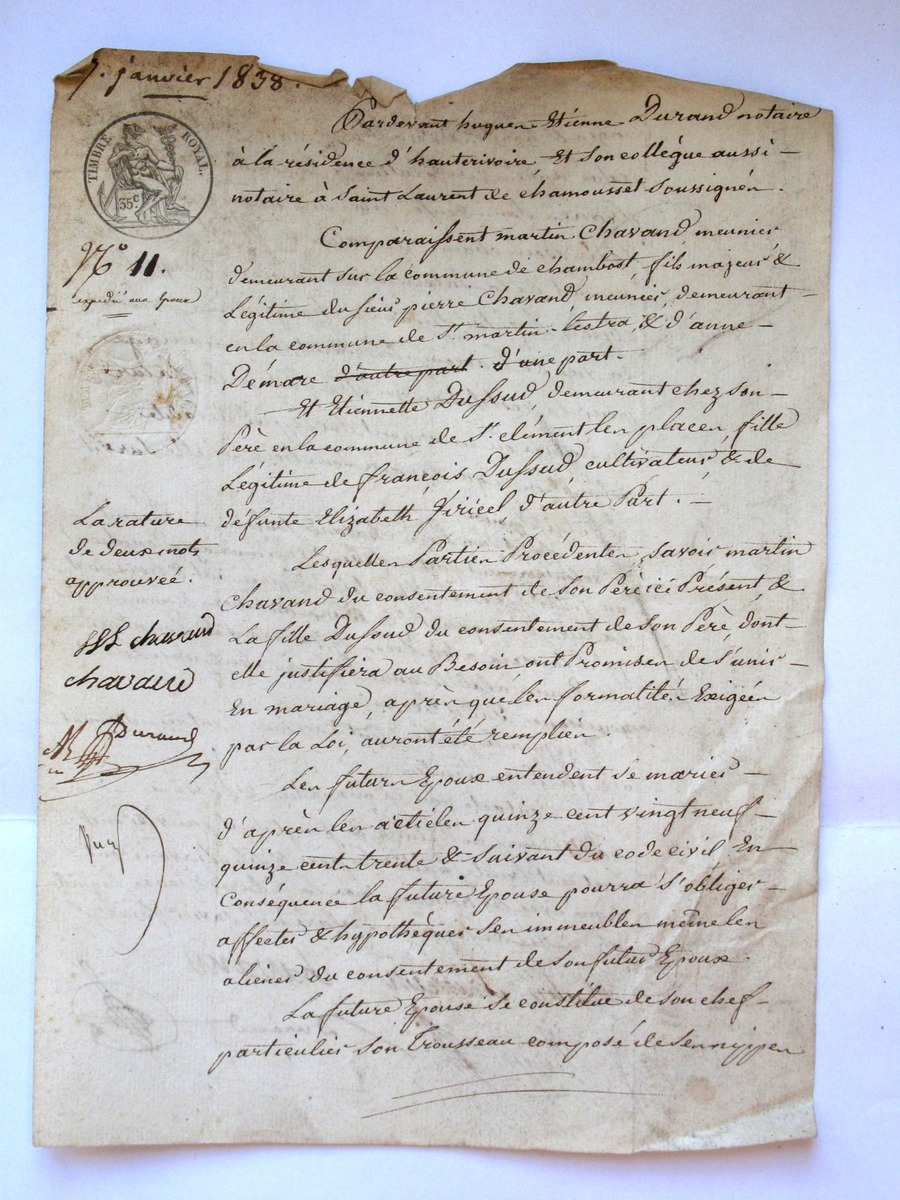 7. janvier 1838.
TIMBRE ROYAL.
35 c.
N° 11.
expédié aux Epoux
Pardevant hugues Etienne Durand notaire
à la résidence d'hauterivoire Et son collègue aussi
notaire à Saint Laurent de chamousset Soussignés.
Comparaissent martin Chavand, meunier
demeurant sur la commune de chambost, fils majeur &
Légitime du sieur pierre Chavand, meunier, demeurant
en la commune de St. martin-lestra, & d'anne
Démare d'autre part. d'une part.
Et Etiennette Dussud, demeurant chez son
Père en la commune de St. clément les places, fille
Légitime de françois Dussud, cultivateur, & de
défunte Elizabeth Jiricel, d'autre Part.
La rature
de deux mots
approuveé.
chavand
chavand
Durand
Lesquelles Parties Procédentes, savoir martin
Chavand du consentement de son Père icé Présent, &
La fille Dussud du consentement de son Père, dont
elle justifiera au Besoin, ont Promises de s'unir
En mariage, après que les formalités Exigées
par la Loi, auront été remplies.
Les futurs Epoux entendent se marier
d'après les articles quinze cent vingt neuf
quinze cent trente & suivant du code civil En
Conséquence la future Epouse pourra s'obliger
affecter & hypothèquer ses immeubles même les
aliéner du consentement de son futur Epoux.
La future Epouse se constitue de son chef
particulier son Trousseau composé de ses nippes